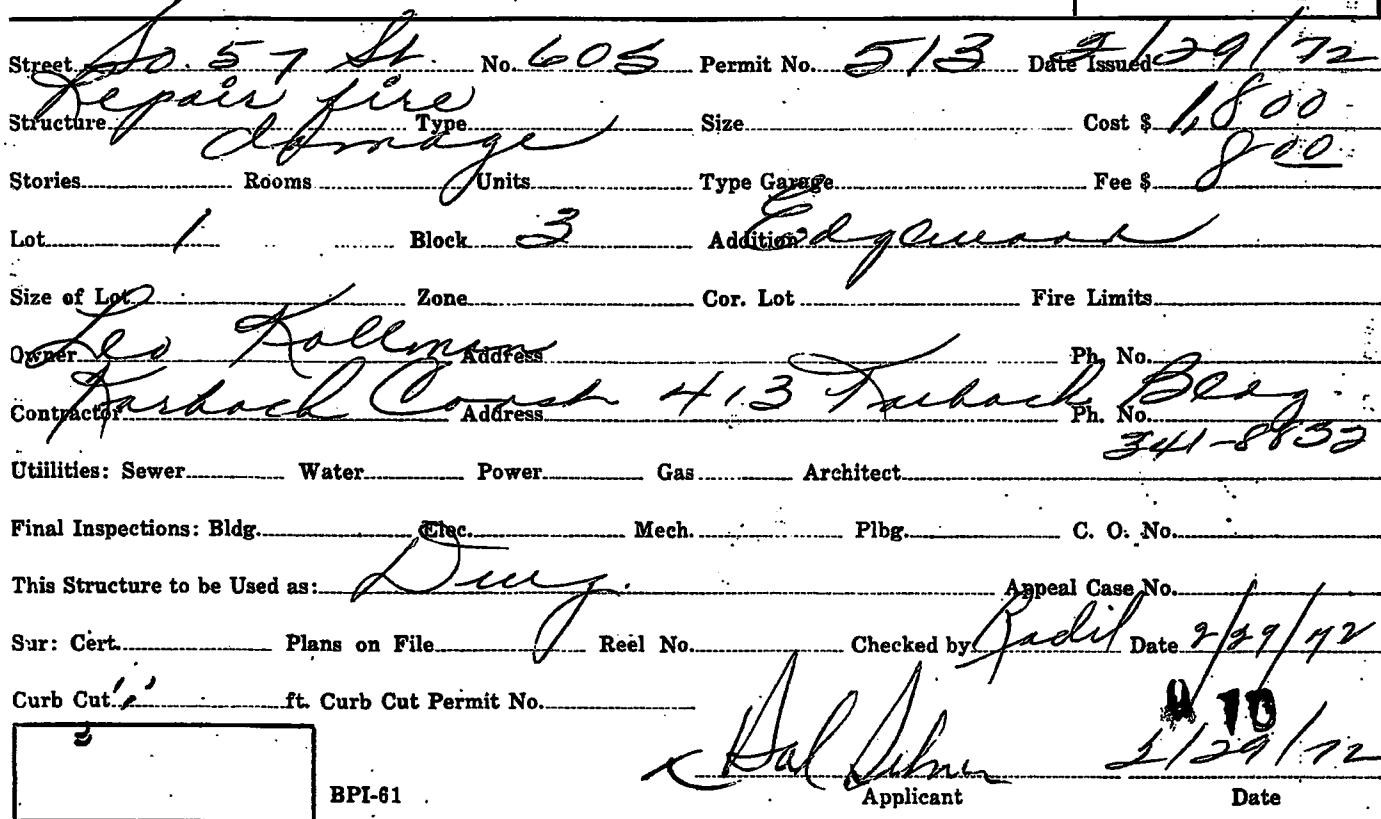 Street So. 57 St. No. 605 Permit No. 513 Date Issued 2/29/72
Repair fire
Structure Type Size Cost $ 1,800
damage
Stories Rooms Units Type Garage Fee $ 8 00
Lot 1 Block 3 Addition Edgewood
Size of Lot Zone Cor. Lot Fire Limits
Owner Leo Kollman Address Ph. No.
Contractor Karbach Const Address 413 Karbach Bldg. Ph. No.
341-8832
Utiilities: Sewer Water Power Gas Architect
Final Inspections: Bldg. Elec. Mech. Plbg. C. O. No.
This Structure to be Used as: Dwg. Appeal Case No.
Sur: Cert. Plans on File Reel No. Checked by Radil Date 2/29/72
Curb Cut ft. Curb Cut Permit No.
10
Hal 2/29/72
BPI-61 Applicant Date